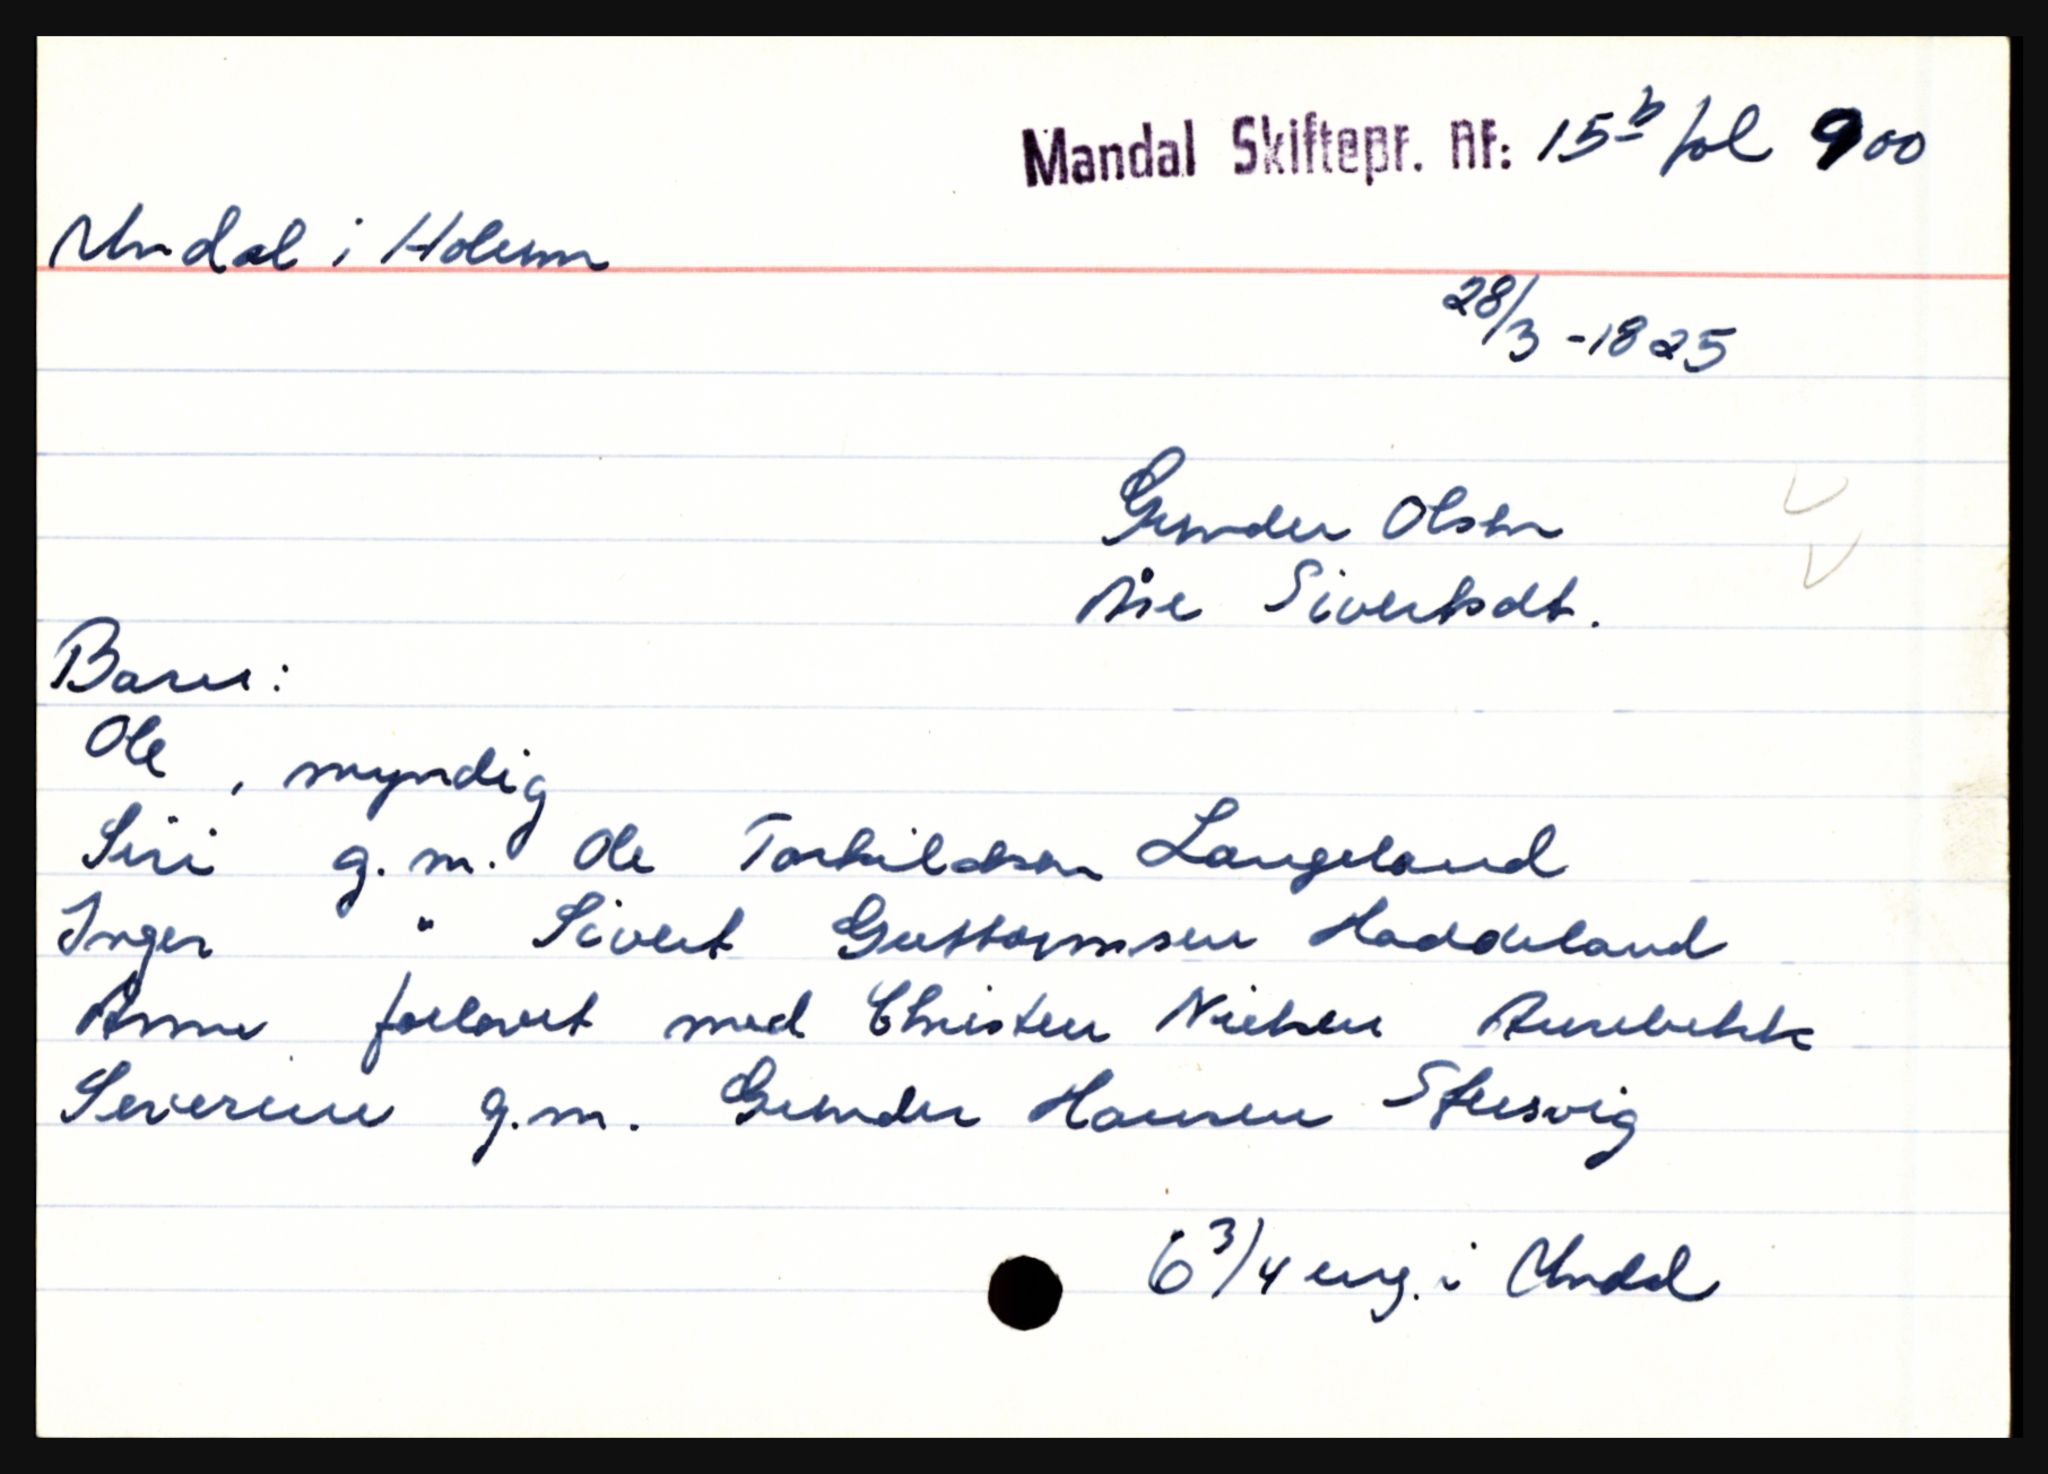 Mandal Skiftepr. nr: 15b fol 900
Undal i Holum
28/3 - 1825
Gunder Olsen
Åse Sivertsdt.
Barn:
Ole, myndig
Siri g.m. Ole Torkildsen Langeland
Inger " Sivert Guttormsen Haddeland
Anne forlovet med Christen Nielsen
Severine g.m. Gunder Hansen Stusvig
6 3/4 eng. i Undal